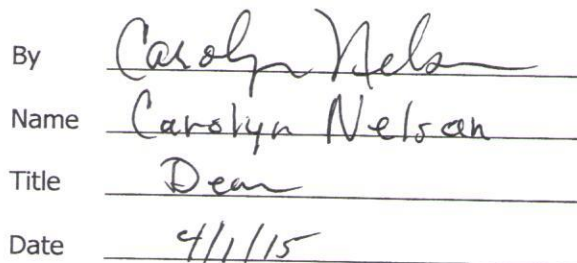 By Carolyn Nelson
Name Carolyn Nelson
Title Dean
Date 4/1/15